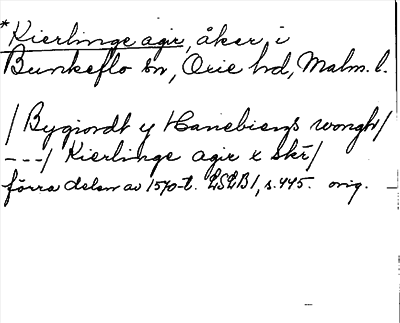 *Kierlinge agir, åker i
Bunkeflo sn, Oxie hd, Malm. l.
/ Bygiordt y Hanebiergs wongh/
---/ Kierlinge agir x skr/
förra delen av 1570-t. LSLB1, s.445. orig.